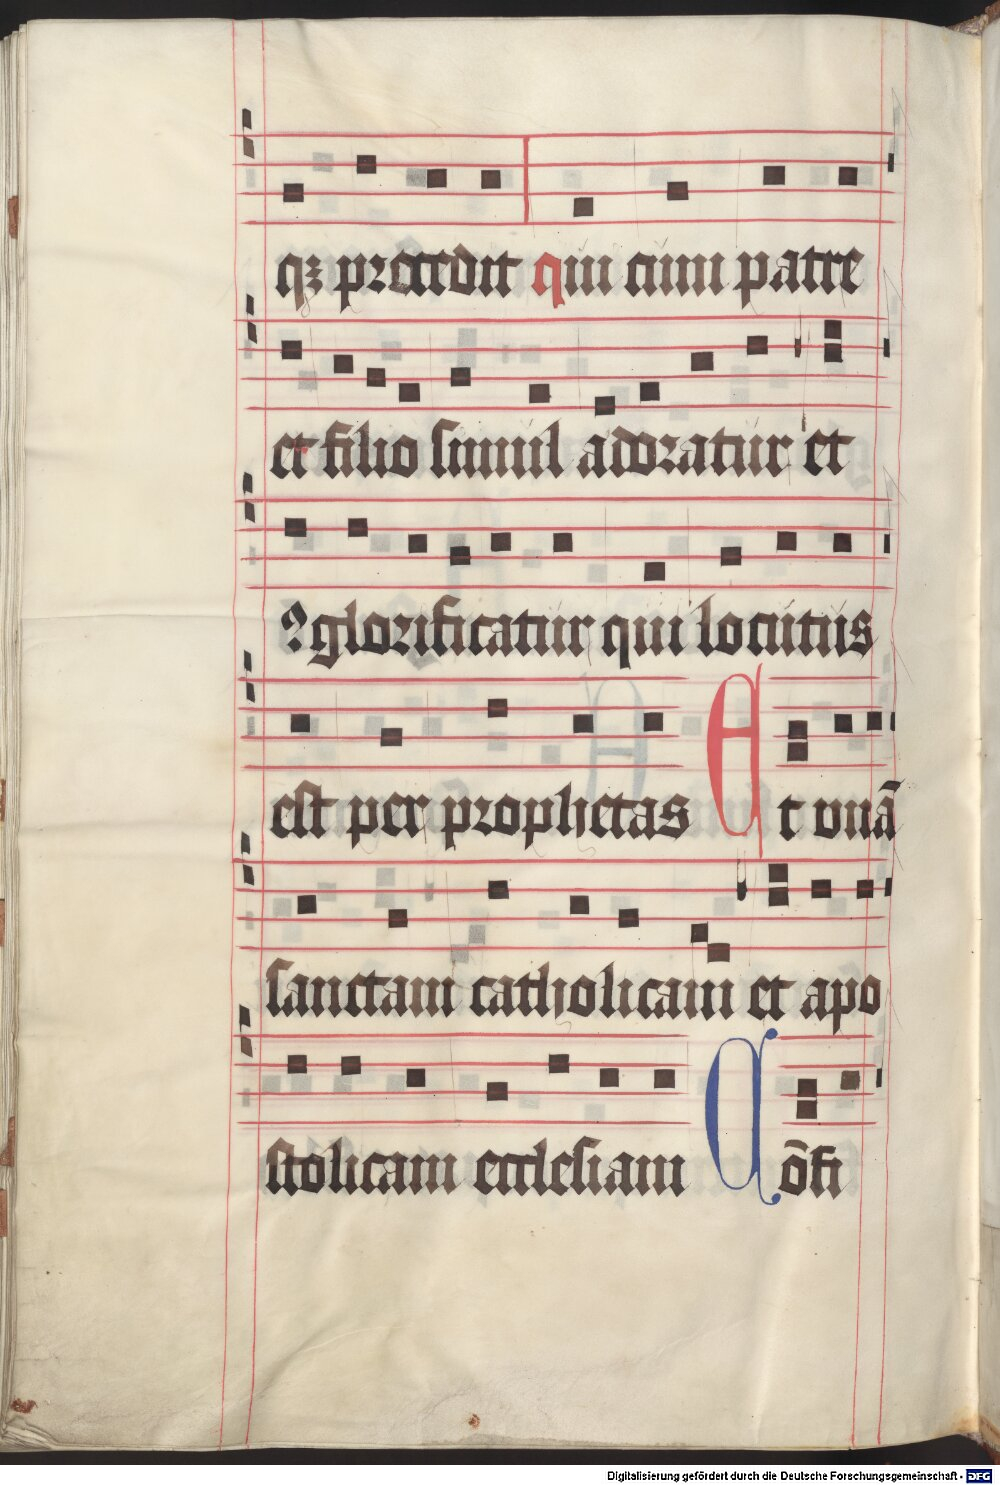 qꝫ procedit qui cum patre
et filio simul adoratur et
⁊ glorificatur qui locutus
est per prophetas Et unā
sanctam catholicam et apo
stolicam ecclesiam Cōfi
Digitalisierung gefördert durch die Deutsche Forschungsgemeinschaft - DFG